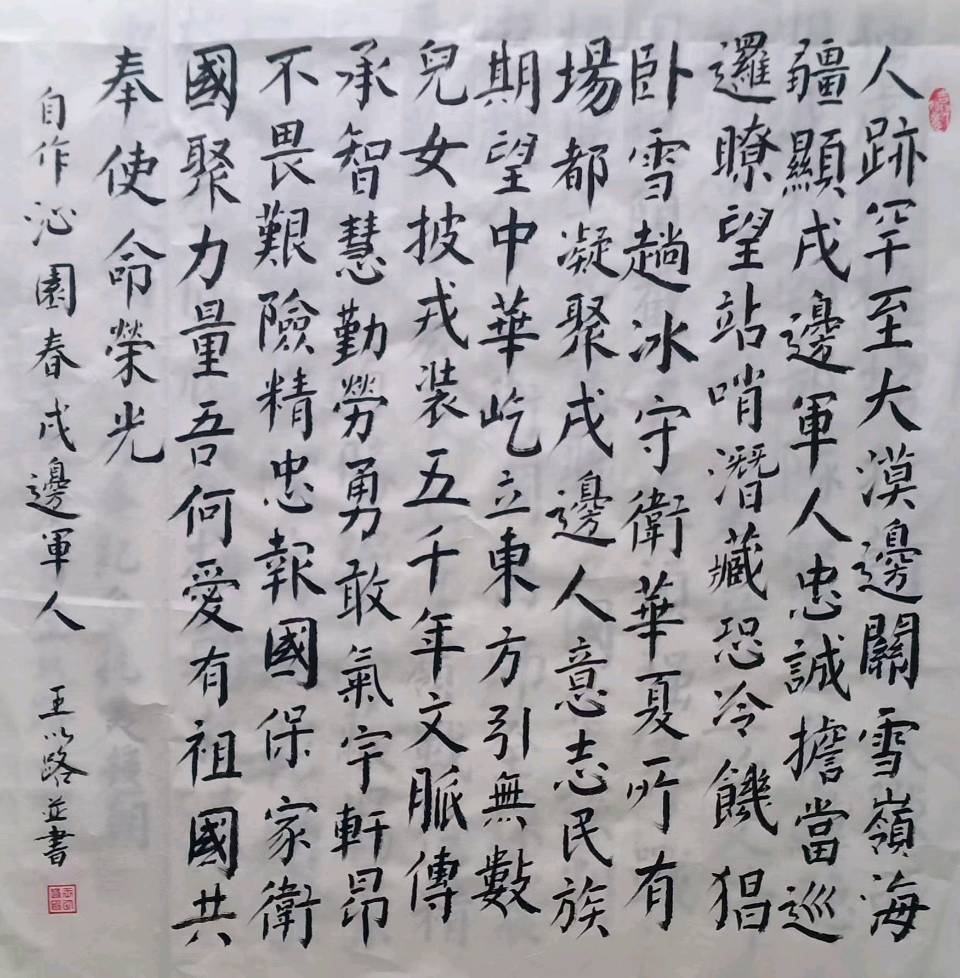 人跡罕至大漠邊關雪嶺海
疆顯戍邊軍人忠誠擔當巡
邏瞭望站哨潛藏恐冷饑猖
卧雪趟冰守衛華夏所有
場都凝聚戍邊人意志民族
期望中華屹立東方引無數
兒女披戎装五千年文脈傳
承智慧勤勞勇敢氣宇軒昂
不畏艱險精忠報國保家衛
國聚力量吾何愛有祖國共
奉使命榮光
自作沁園春戍邊軍人 王以路並書